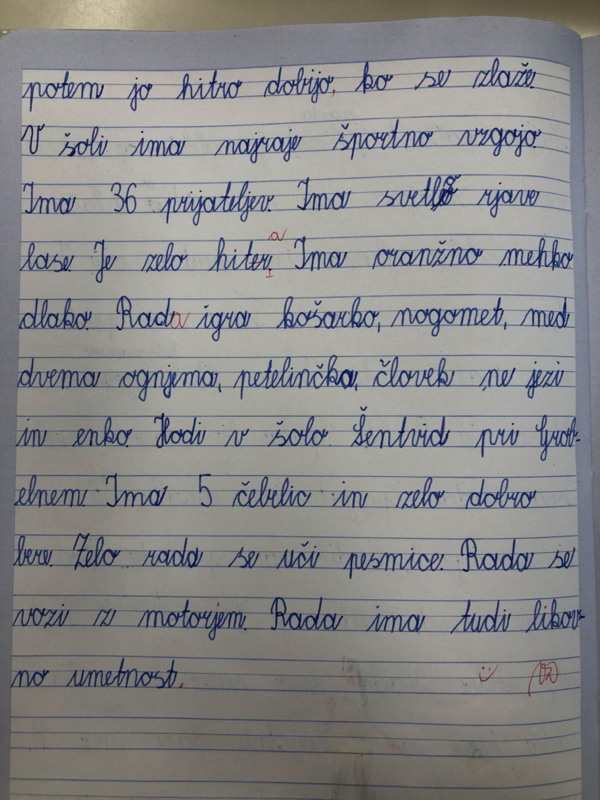 potem jo hitro dobijo, ko se zlaže.
V šoli ima najraje športno vzgojo.
Ima 36 prijateljev. Ima svetlo rjave
lase. Je zelo hitera. Ima oranžno mehko
dlako. Rada igra košarko, nogomet, med
dvema ognjema, petelinčka, človek ne jezi
in enko. Hodi v šolo Šentvid pri Grob-
elnem. Ima 5 čebelic in zelo dobro
bere. Zelo rada se uči pesmice. Rada se
vozi z motorjem. Rada ima tudi likov-
no umetnost.